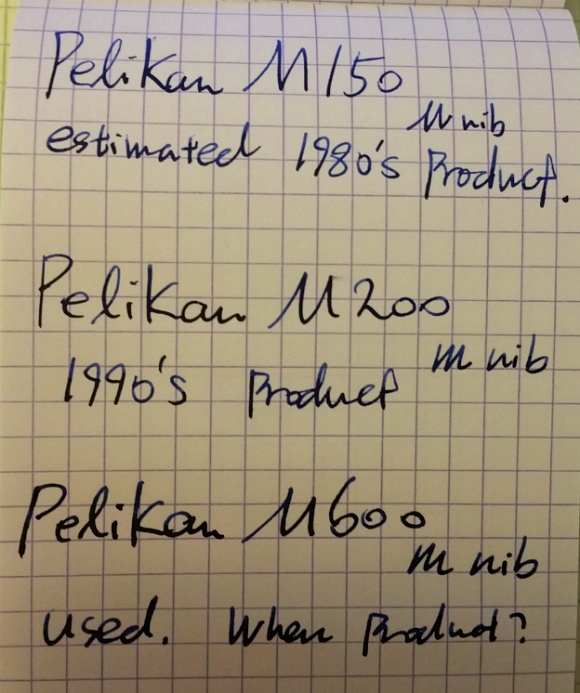 Pelikan M150
M nib
estimated 1980's Product.
Pelikan M200
M nib
1990's Product
Pelikan M600
M nib
used. When Product?